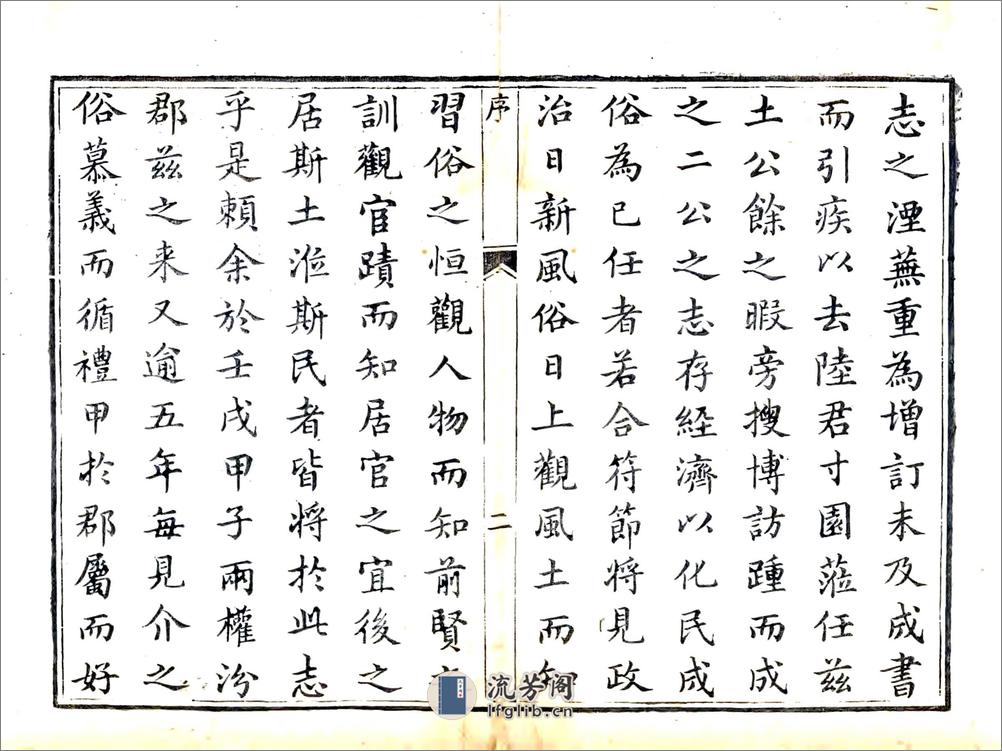 志之湮蕪重為增訂未及成書
而引疾以去陸君寸園蒞任茲
土公餘之暇旁搜博訪踵而成
之二公之志存経濟以化民成
俗為已任者若合符節將見政
治日新風俗日上觀風土而知
序
二
習俗之恒觀人物而知前賢之
訓觀官蹟而知居官之宜後之
居斯土涖斯民者皆將於此志
乎是頼余於壬戌甲子兩權汾
郡茲之来又逾五年每見介之
俗慕義而循禮甲於郡屬而好
流芳阁
lfglib.cn